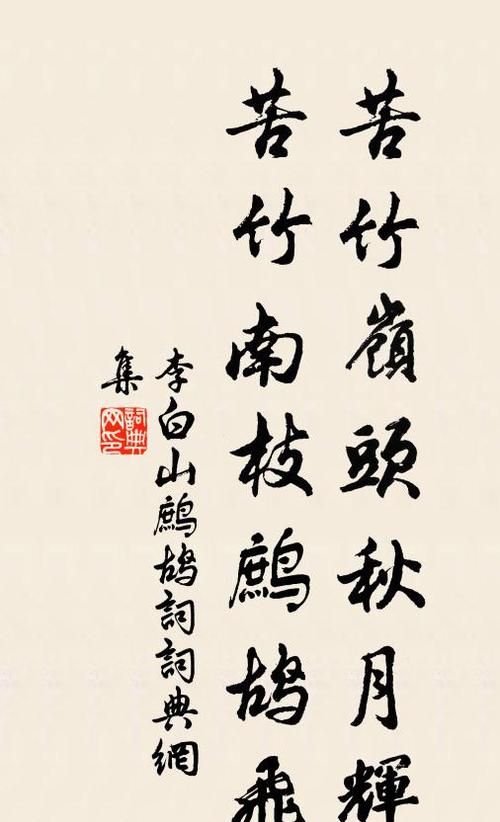 苦竹嶺頭秋月輝
苦竹南枝鷓鴣飛
李白山鷓鴣詞詞典網
集
詞典
网印